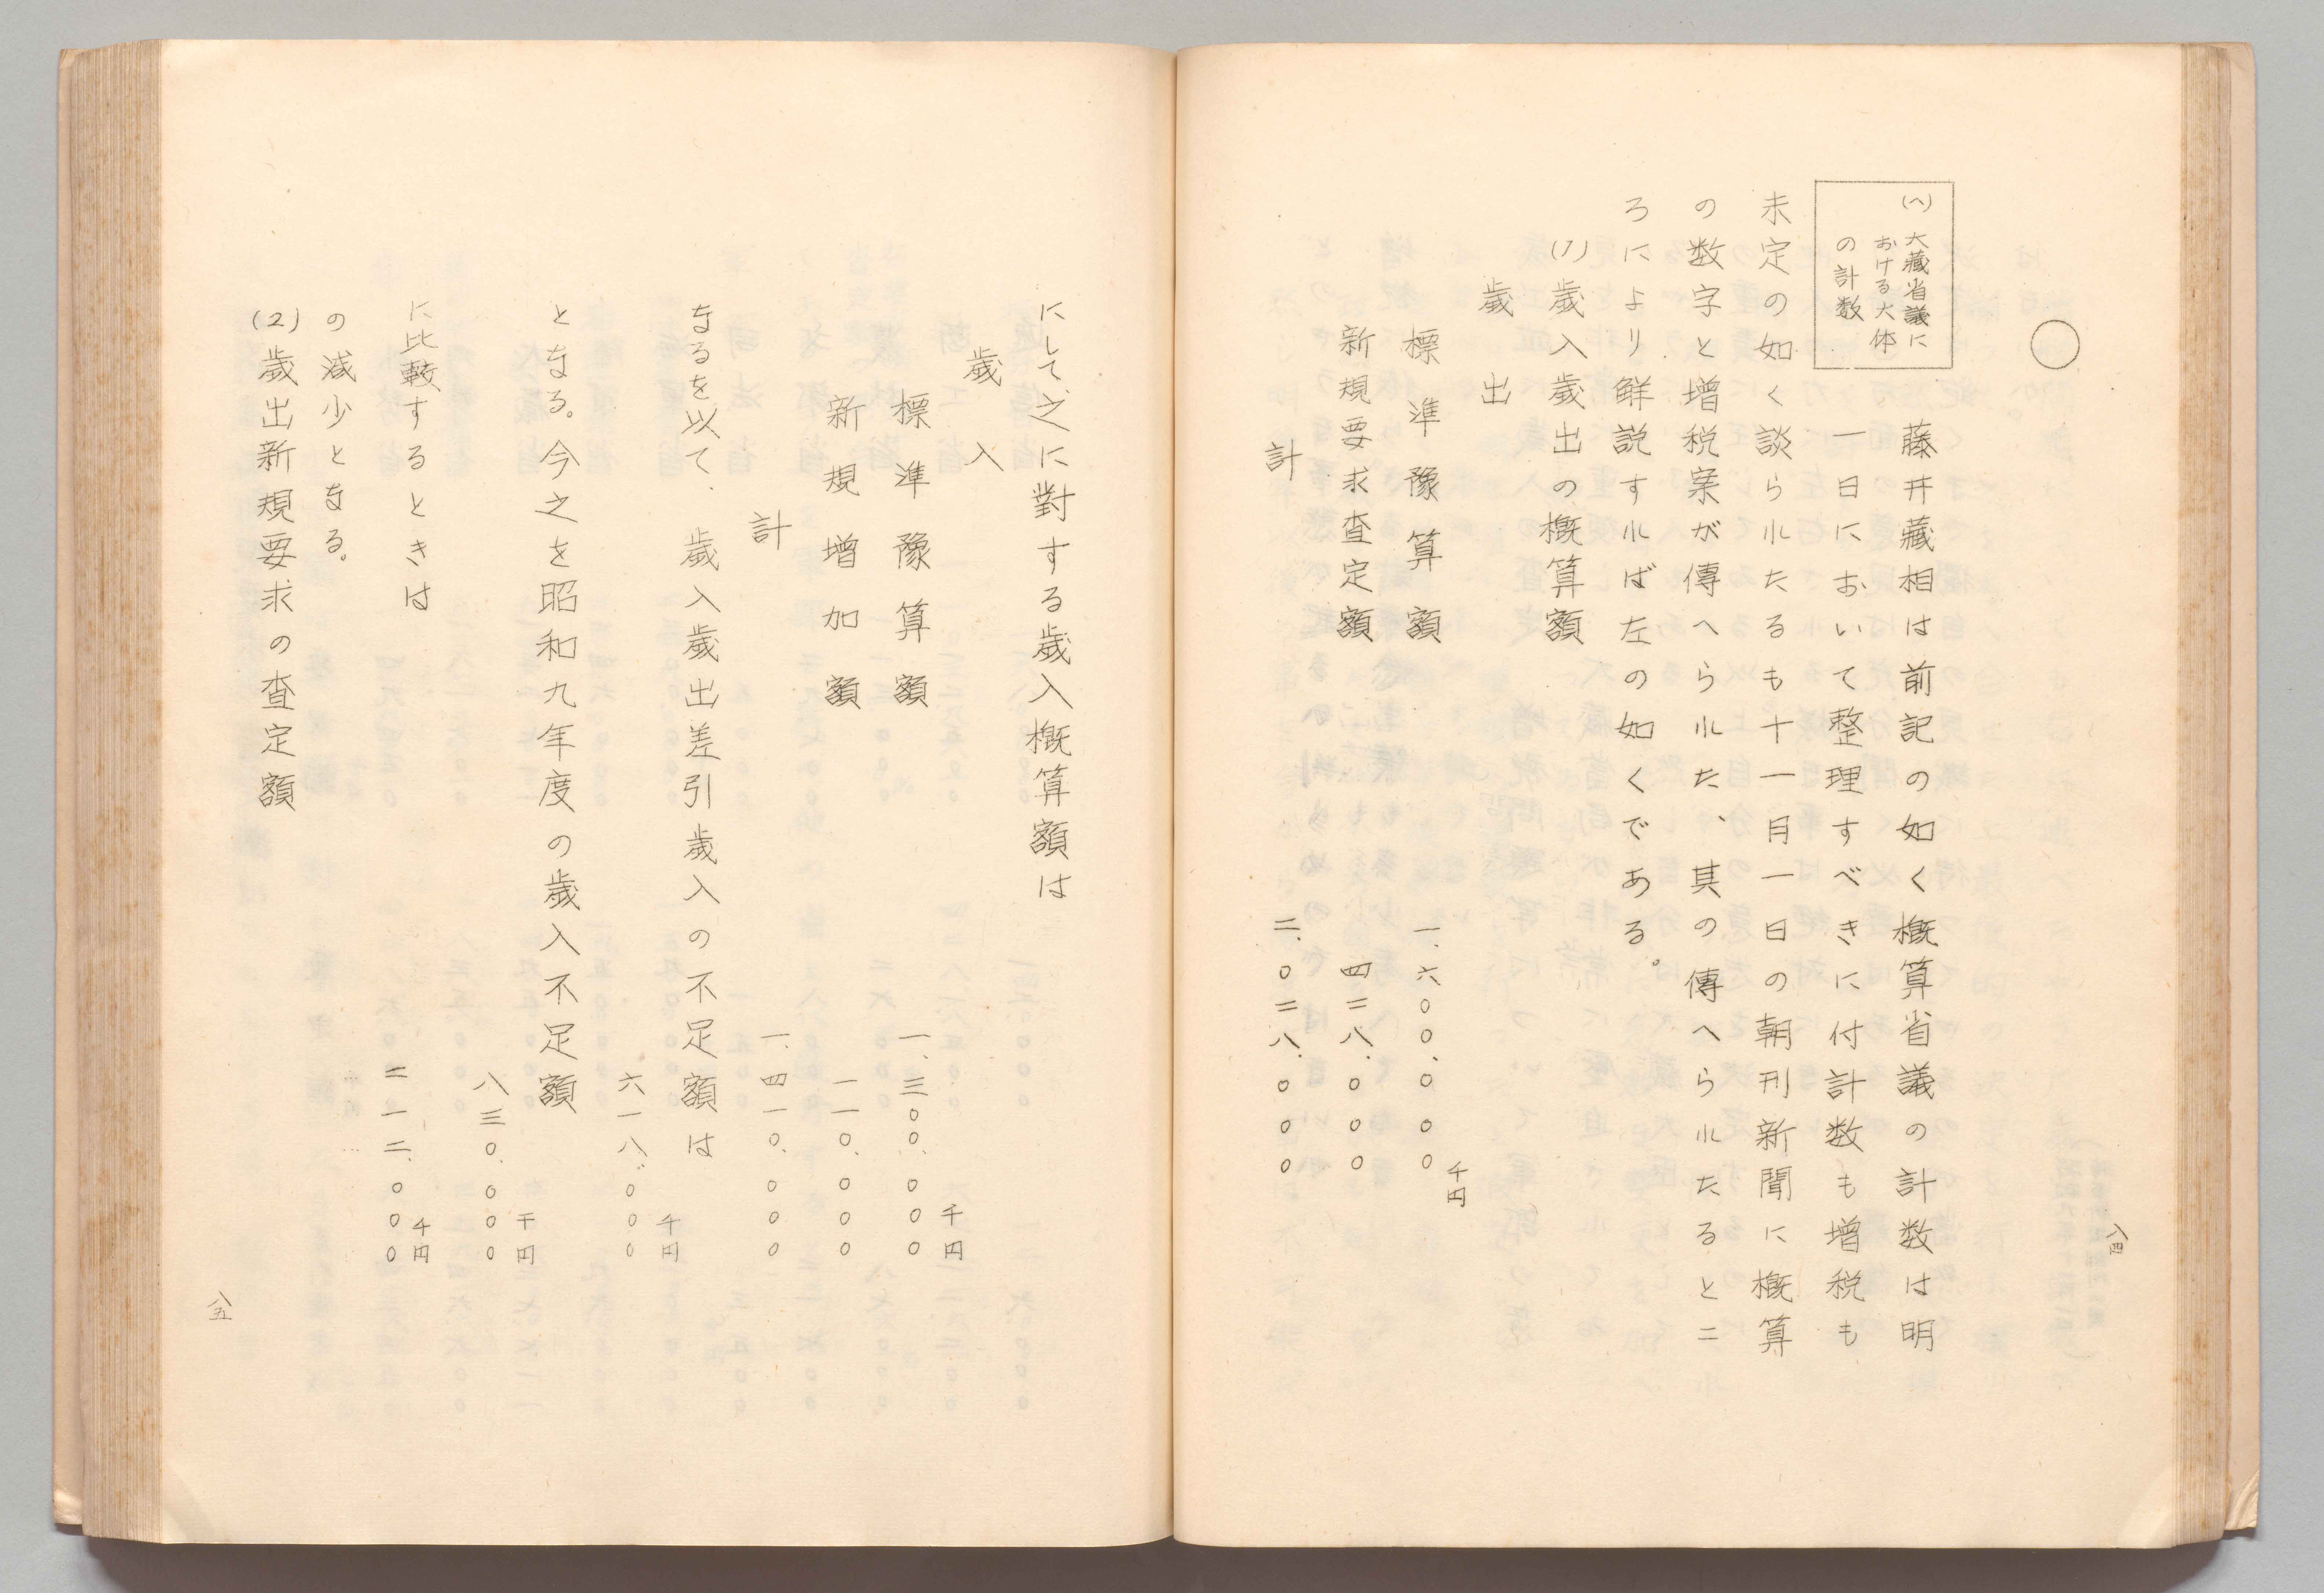 八四
(ヘ) 大藏省議に
おける大体
の計数
藤井藏相は前記の如く概算省議の計数は明
一日において整理すべきに付計数も増税も
未定の如く談られたるも十一月一日の朝刊新聞に概算
の数字と増税案が傳へられた、其の傳へられたるとこ
ろにより鮮説すれば左の如くである。
(1) 歳入歳出の概算額
歳出
千円
標準豫算額 一、六〇〇、〇〇〇
新規要求査定額 四二八、〇〇〇
計 二、〇二八、〇〇〇
にして、之に對する歳入概算額は
歳入
千円
標準豫算額 一、三〇〇、〇〇〇
新規増加額 一一〇、〇〇〇
計 一、四一〇、〇〇〇
なるを以て、歳入歳出差引歳入の不足額は
千円
六一八、〇〇〇
となる。今之を昭和九年度の歳入不足額
千円
八三〇、〇〇〇
に比較するときは
千円
二一二、〇〇〇
の減少となる。
(2) 歳出新規要求の査定額
八五